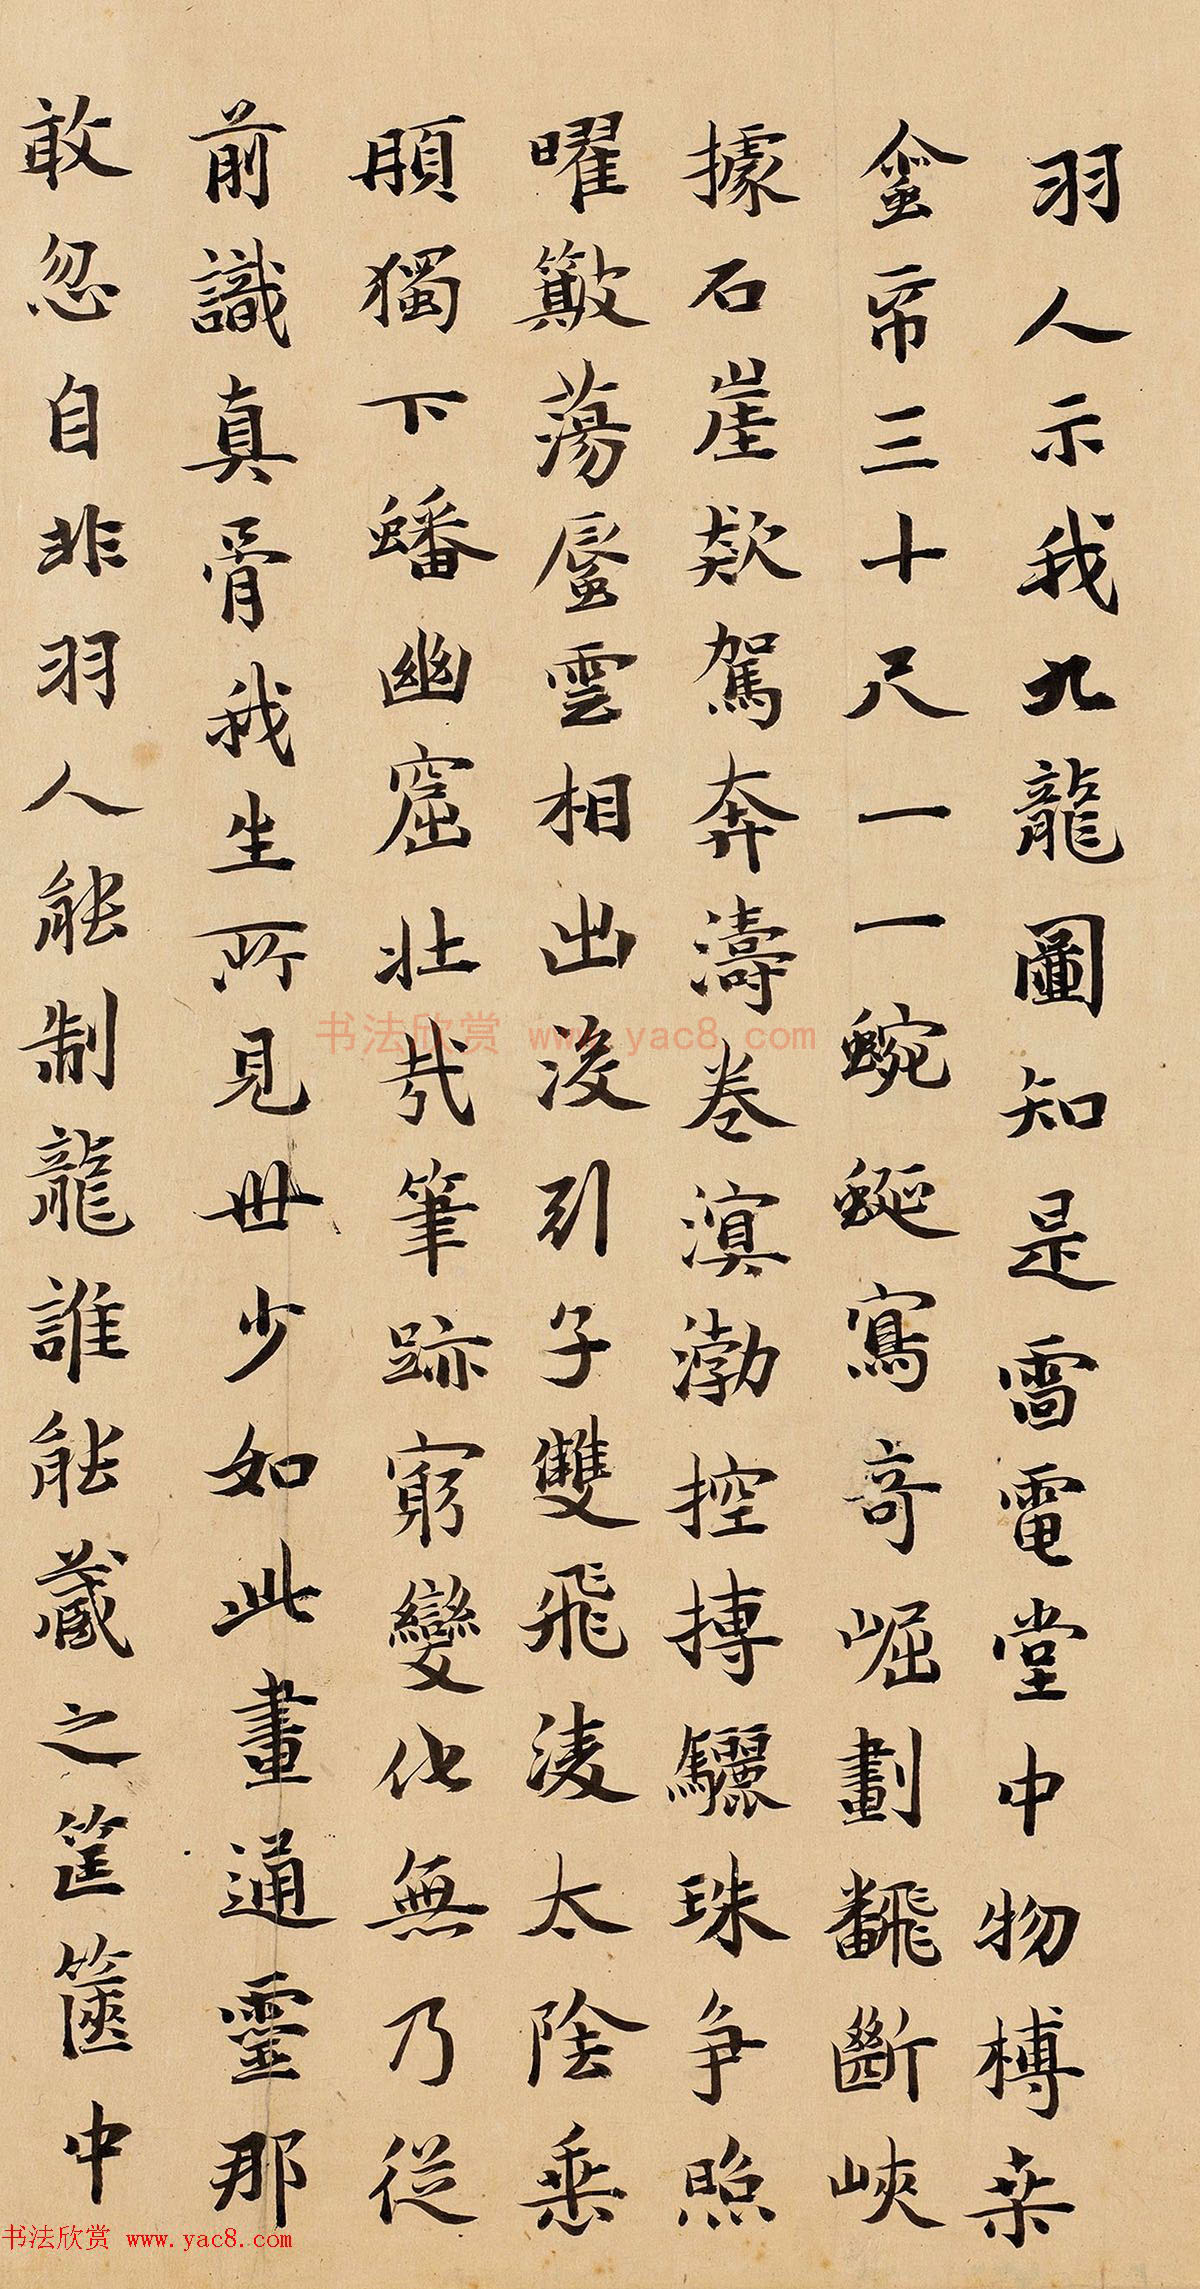 羽人示我九龍圖知是雷電堂中物榑桒
蛮帋三十尺一一蜿蜒寫奇崛劃飜斷峽
據石崖欻駕奔濤卷溟渤控摶驪珠争照
曜簸蕩蜃雲相出没引子雙飛淩太陰垂
頭獨下蟠幽窟壯哉筆跡窮變化無乃從
前識真骨我生所見世少如此畫通靈那
敢忽自非羽人能制龍誰能蔵之筐篋中
书法欣赏 www.yac8.com
书法欣赏 www.yac8.com